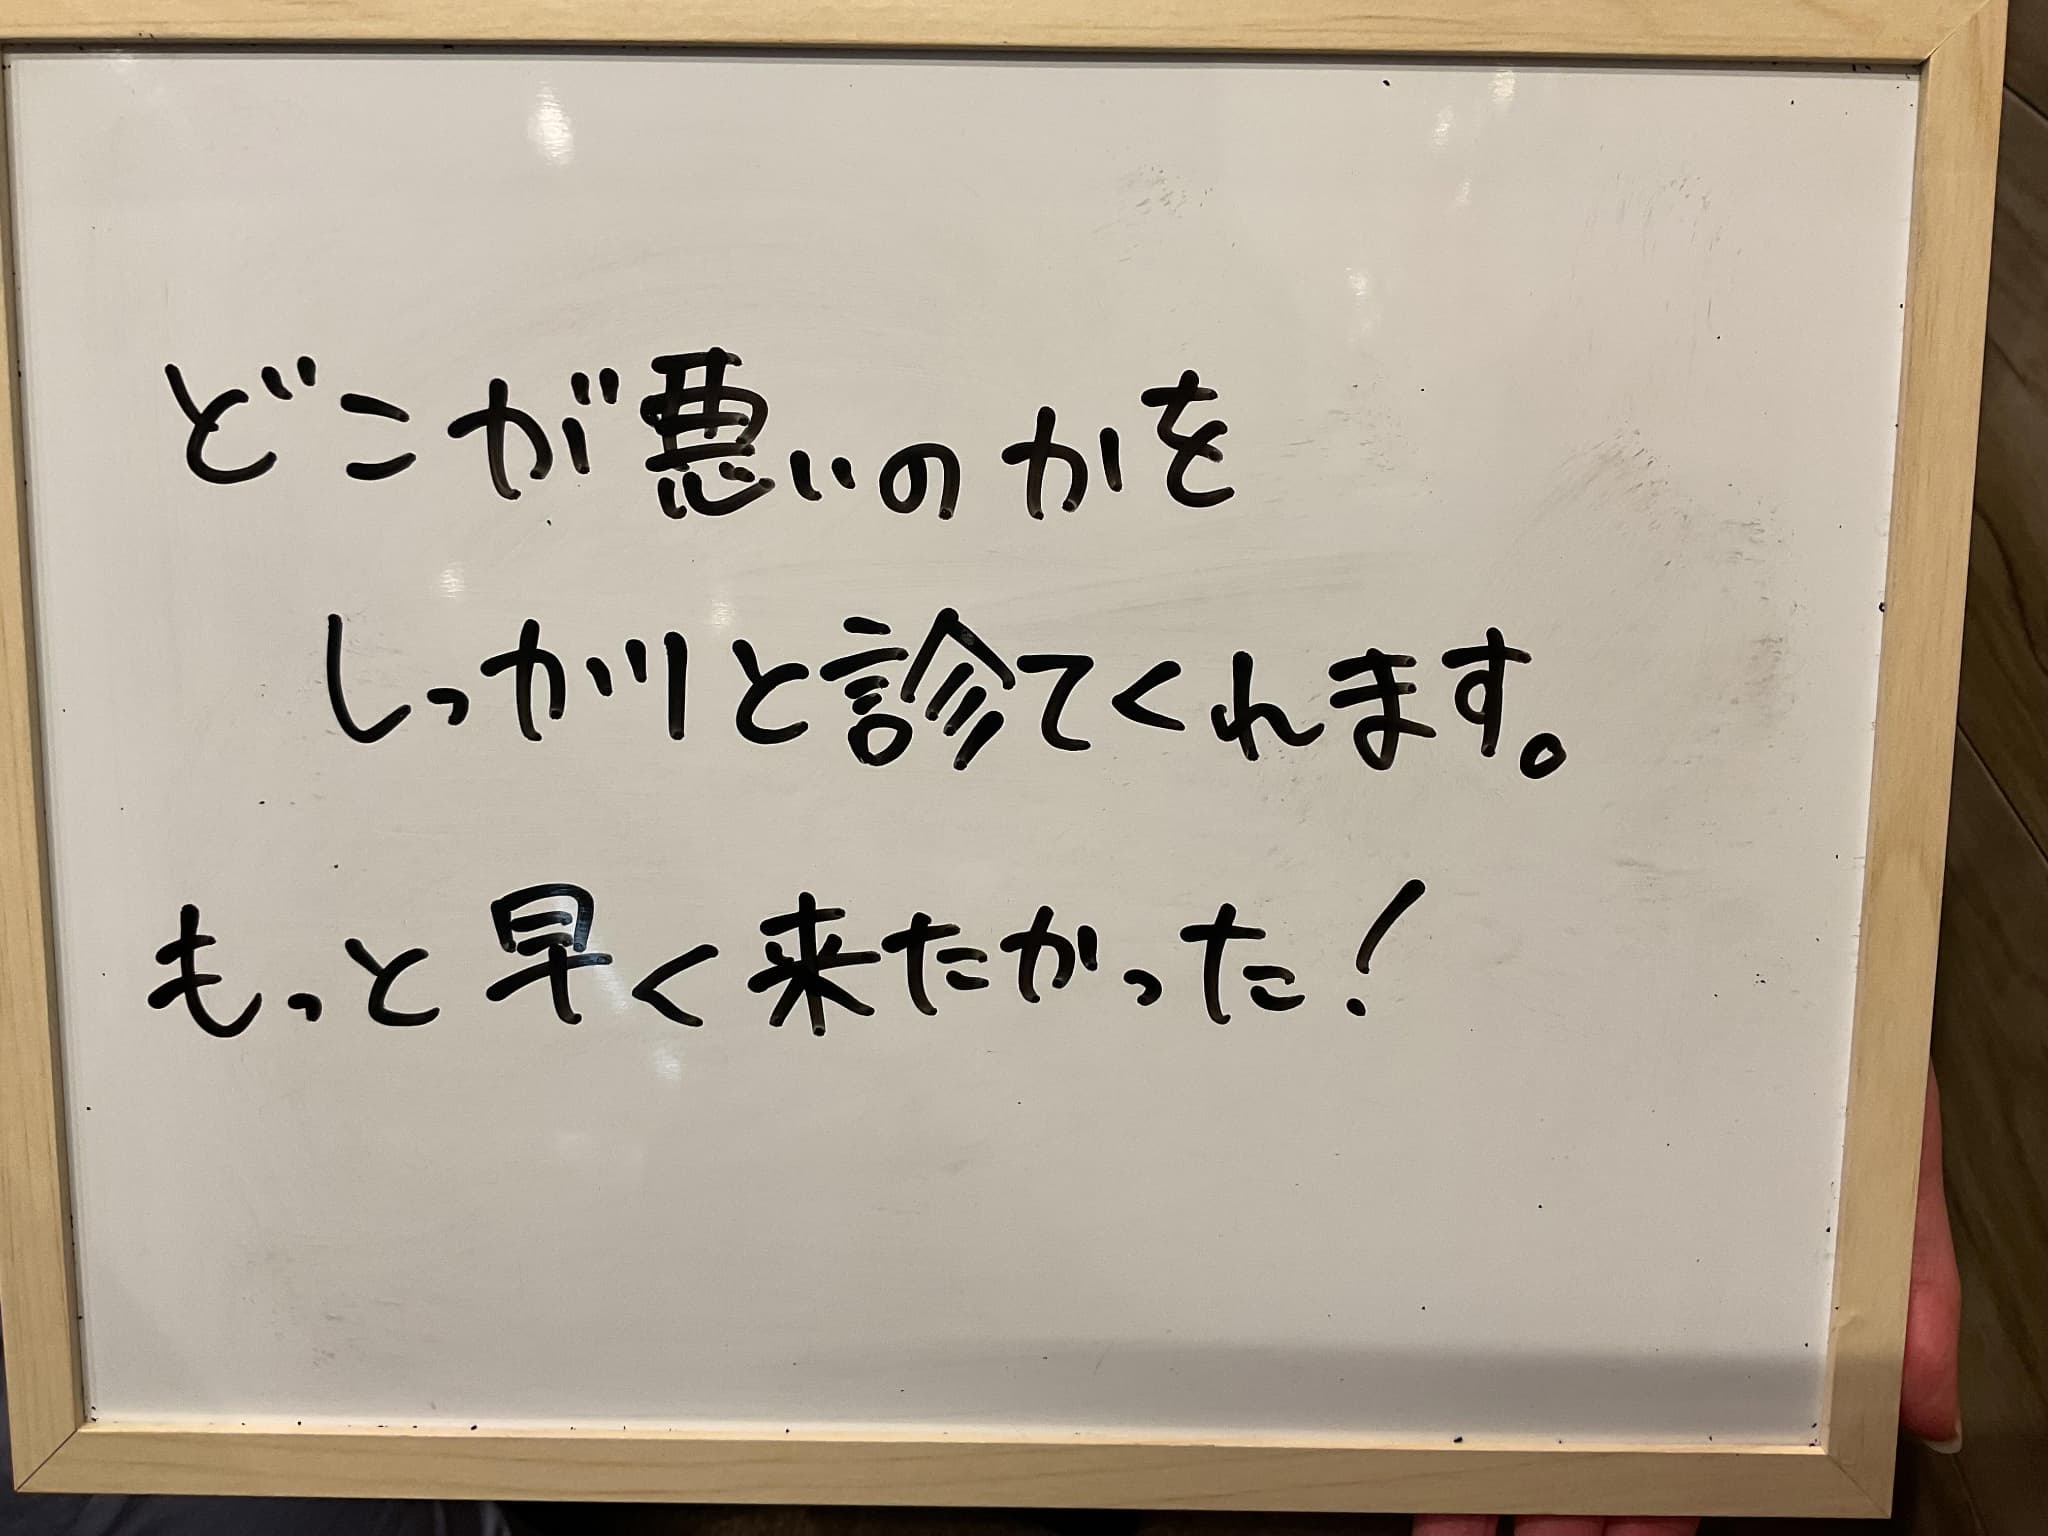 どこが悪いのかを
しっかりと診てくれます。
もっと早く来たかった!